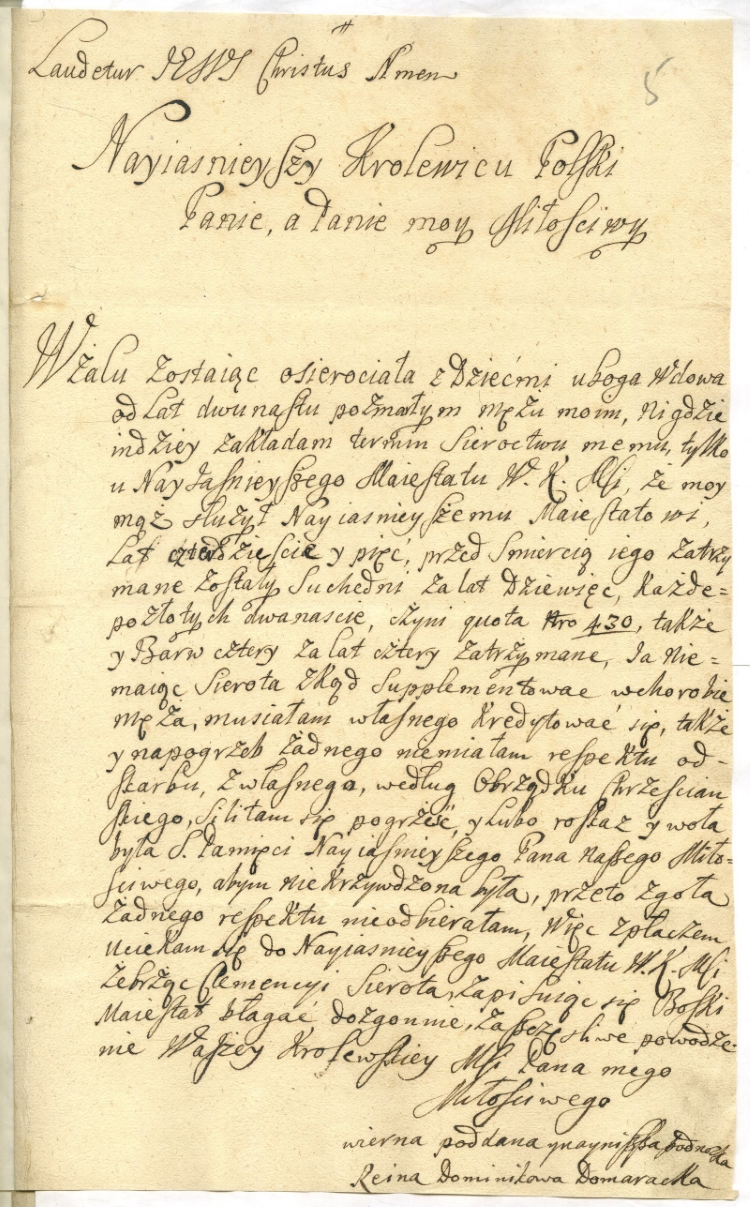 Laudetur JESUS Christus Amen
5
Nayiasnieyszy Krolewicu Polski
Panie, a Panie moy Miłosciwy
W żalu zostaiąc osierociała z Dziećmi uboga wdowa
od Lat dwunastu pozmarłym mężu moim, nigdzie
indziey zakładam termin sieroctwu memu, tylko
u Nayiaśnieyszego Maiestatu W. K. Msi, że moy
mąż służył Nayiasnieyszemu Maiestatowi,
Lat czterdziescie y pięć, przed smiercią iego zatrzy
mane zostały suchedni za lat Dziewięc, każde=
po złotych dwanascie, czyni quota Nro 430, także
y Barw cztery za lat cztery zatrzymane, Ia nie=
maiąc sierota zkąd supplementowac w chorobie
męża, musiałam własnego kredytować się, także
y na pogrzeb żadnego niemiałam respektu od-
skarbu, z własnego, według Obrządku Chrzescian
skiego, siliłam się pogrześć, y lubo roskaz y wola
była S. Pamięci Nayiasnieyszego Pana naszego Miło-
sciwego, abym nie krzywdzona była, przeto zgoła
żadnego respektu nieodbierałam, więc z płaczem
uciekam się do Nayiasnieyszego Maiestatu W. K. Msi
żebrząc Clemencyi sierota, zapisuiąc się Boski
Maiestat błagać dozgonnie, za szczęsliwe powodze-
nie Waszey Krolewskiey Msi Pana mego
Miłosciwego
wierna poddana y nayniższa podnożka
Reina Dominikowa Domaracka